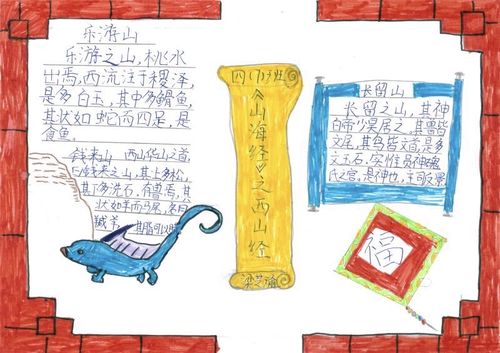 乐游山
乐游之山,桃水
出焉,西流注于稷泽,
是多白玉,其中多䱻鱼,
其状如蛇而四足,是
食鱼。
钱来山 西山华山之首,
曰钱来之山,其上多松,
其下多洗石,有兽焉,其
状如羊而马尾,名曰
羬羊,其脂可以
四(1)班
《山海经》之西山经
梁艺谕
长留山
长留之山,其神
白帝少昊居之,其兽皆
文尾,其鸟皆文首,是多
文玉石,实惟员神磈
氏之宫,是神也,主司反景
福